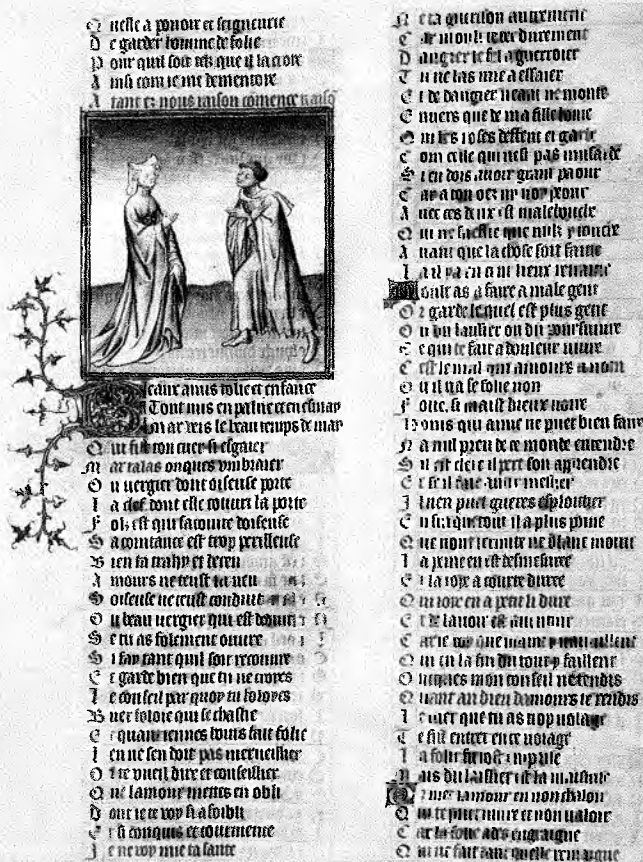 Q nelle a pouoir et seigneurie
D e garder homme de folie
P our quil soit telz que il la croie
A insi com ie me dementoie
A tant ez nous raison comence
Beaux amis folie et enfance
T ont mis en paine et en esmay
Mar veis le beau temps de may
Q ui fist ton cuer si esgaier
M ar talas onques vmbraier
O u vergier dont oiseuse porte
L a clef dont elle touurir la porte
F olz est qui sacointe doiseuse
S acointance est trop perilleuse
B ien ta trahy et deceu
A mours ne teust ia veu
S oiseuse ne teust conduit
O u beau vergier qui est deduit
S e tu as folement ouure
S i fay tant quil soit recouure
E t garde bien que tu ne croies
L e conseil par quoy tu foloyes
B uer foloie qui se chastie
E t quant iennes homs fait folie
L en ne sen doit pas merueillier
O r te vueil dire et conseillier
Q ue lamour mettes en obli
D ont ie te voy si afoibli
E t si conquis et tourmente
J e ne voy mie ta sante
N e ta guerison autrement
C ar moult te bee durement
D angier le fel a guerroier
T u ne las mie a essaier
E t de dangier neant ne monte
E nuers que de ma fille honte
Q ui les roses deffent et garde
C om celle qui nest pas musarde
S i en dois auoir grant paour
C ar a ton oez ny voy peour
A uec ces deux est malebouche
Q ui ne sueffre que nulz y touche
A uant que la chose soit faite
L a il ia en cent lieux
Moult as a faire a male gent
O r garde lequel est plus gent
O u du laissier ou du poursuiure
C e qui te fait a douleur viure
C est le mal qui amours a nom
O u il na se folie non
F olie, si maist dieux voire
H oms qui aime ne puet bien faire
N a nul preu de ce monde entendre
S il est clers il pert son aprendre
E t se il fait autre mestier
J l nen puet gueres esploitier
E n surque tout il a plus paine
Q ue nont hermite ne blanc moine
L a peine en est desmesuree
E t la ioye a courte duree
Q ui ioye en a petit li dure
E t de lauoir est auenture
C ar ie voy que maint y trauaillent
Q ui en la fin du tout y faillent
O nques mon conseil natendis
Q uant au dieu damours te rendis
L e cuer que tu as trop volage
T e fist entrer en ce
L a folie fu tost emprise
M ais du laissier est la maistrise
Or met lamour en nonchaloir
Q ui te puet nuire et non valoir
C ar la folie ades engraigne
Q ui ne fait tant quelle remaigne